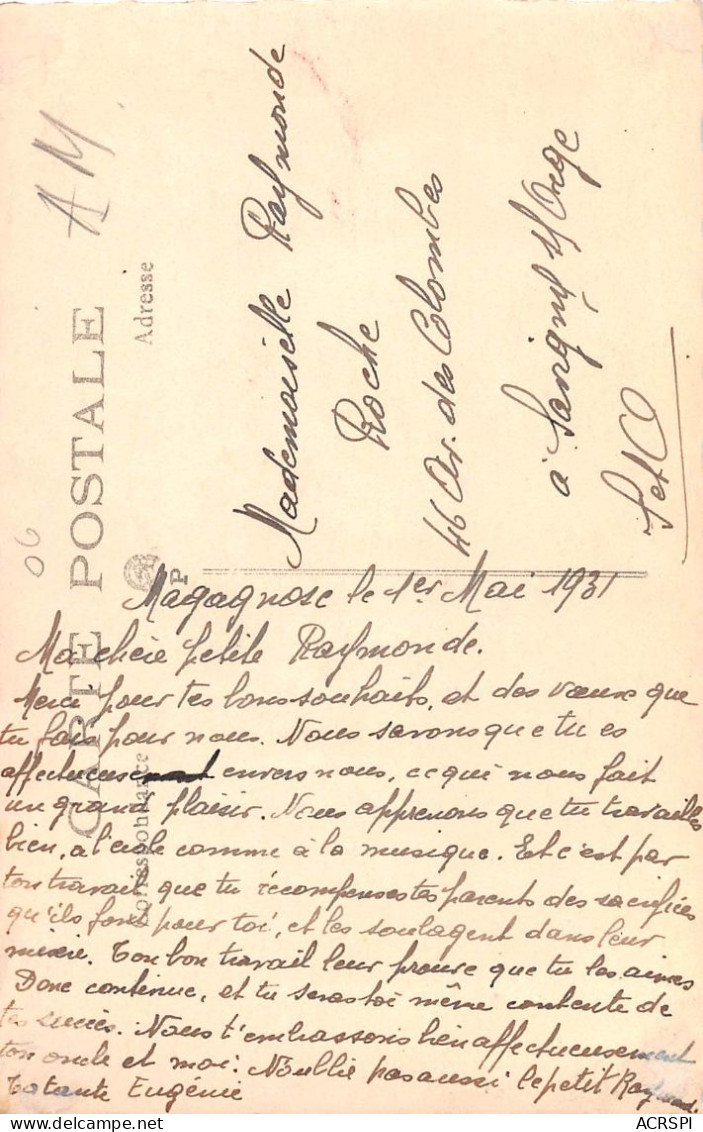 CARTE POSTALE
Correspondance
Adresse
AM.
06
P
Mademoiselle Raymonde
Roche
46 Av. des Colombes
à Savigny s/ Orge
S et O
Magagnosc le 1er Mai 1931
Ma chère petite Raymonde.
Merci pour tes bons souhaits, et des vœux que
tu fais pour nous. Nous savons que tu es
affectueuse envers nous, ce qui nous fait
un grand plaisir. Nous apprenons que tu travailles
bien, a l'école comme à la musique. Et c'est par
ton travail que tu récompenses tes parents des sacrifices
qu'ils font pour toi, et les soulagent dans leur
misère. Ton bon travail leur prouve que tu les aimes
Donc continue, et tu seras toi même contente de
tes succès. Nous t'embrassons bien affectueusement
ton oncle et moi. N'oublie pas aussi le petit Raymond.
Ta tante Eugénie
ACRSPI